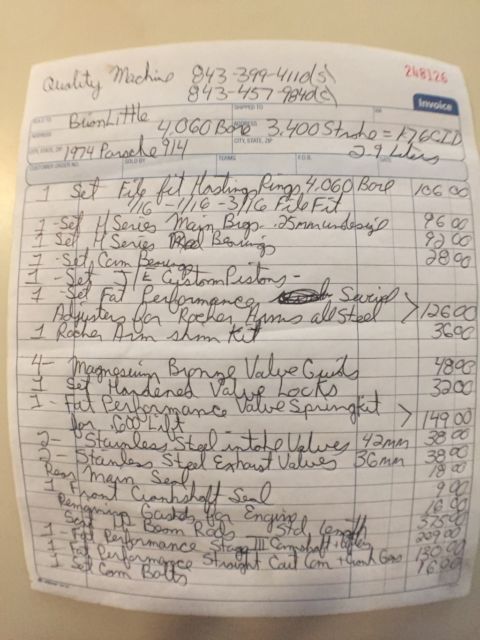 Quality Machine 843-399-4110(s)
843-457-9840(c)
248126
Invoice
SOLD TO Brion Little
SHIPPED TO
ADDRESS
ADDRESS
4,060 Bore 3,400 Stroke = 176CID
CITY, STATE, ZIP 1974 Porsche 914
CITY, STATE, ZIP
2.9 Liters
CUSTOMER ORDER NO. SOLD BY TERMS F.O.B. DATE
1 Set File fit Hastings Rings 4,060 Bore 106 00
1/16 - 1/16 - 3/16 File Fit
1 - Set H Series Main Brgs. .25mm undersize 96 00
1 Set H Series Rod Bearings 92 00
1 - Set Cam Bearings 28 90
1 - Set J/E Custom Pistons -
1 - Set Fat Performance Swivel
Adjusters for Rocker Arms all Steel > 126 00
1 Rocker Arm shim Kit 36 00
4 - Magnesium Bronze Valve Guids 48 90
1 Set Hardened Valve Locks 32 00
1 - Fat Performance Valve Spring Kit
for .600 Lift > 149 00
2 - Stainless Steel intake Valves 42mm 38 00
2 - Stainless Steel Exhaust Valves 36mm 38 00
Rear Main Seal 18 00
1 Front Crankshaft Seal 9 00
Remaining Gaskets for Engine
Set Beam Rods Std Length
Fat Performance Stage III Camshaft +
Performance Straight Cut Cam + Crank Gears 130 00
Set Cam Bolts 16 00